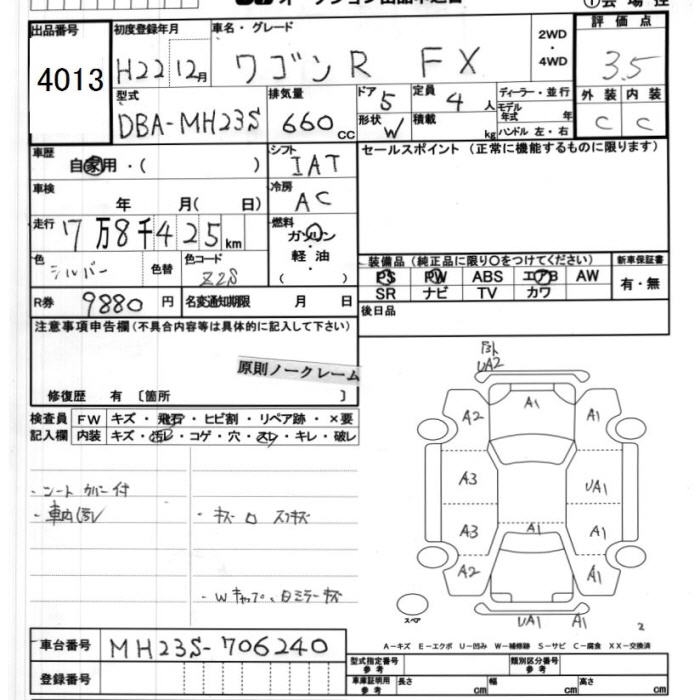 出品番号 4013
初度登録年月 H22 12月
車名・グレード ワゴンR FX
2WD・4WD
評価点 3.5
型式 DBA-MH23S
排気量 660cc
ドア 5
形状 W
定員 4人
積載 kg
ディーラー・並行
モデル年式 年
ハンドル 左・右
外装 C
内装 C
車歴 自家用・( )
シフト IAT
セールスポイント (正常に機能するものに限ります)
車検 年 月( 日)
冷房 AC
走行 7万8千425km
燃料 ガソリン・軽油・( )
色 シルバー 色替
色コード Z2S
装備品 (純正品に限り○をつけてください) 新車保証書
PS PW ABS エアB AW 有・無
SR ナビ TV カワ
R券 9880円
名変通知期限 月 日
後日品
注意事項申告欄 (不具合内容等は具体的に記入して下さい)
原則ノークレーム
修復歴 有 〔箇所 〕
検査員記入欄
FW キズ・飛石・ヒビ割・リペア跡・×要
内装 キズ・汚レ・コゲ・穴・スレ・キレ・破レ
UA2
A1
A2 A1
A3 UA1
A3 A1 A1
A2 A1
UA1 A1
スペア
2
・シートカバー付
・車内汚レ
・Wキャップ、
A-キズ E-エクボ U-凹み W-補修跡 S-サビ C-腐食 XX-交換済
車台番号 MH23S-706240
型式指定番号 参考 類別区分番号 参考
登録番号
車庫証明用 参考 長さ cm 幅 cm 高さ cm